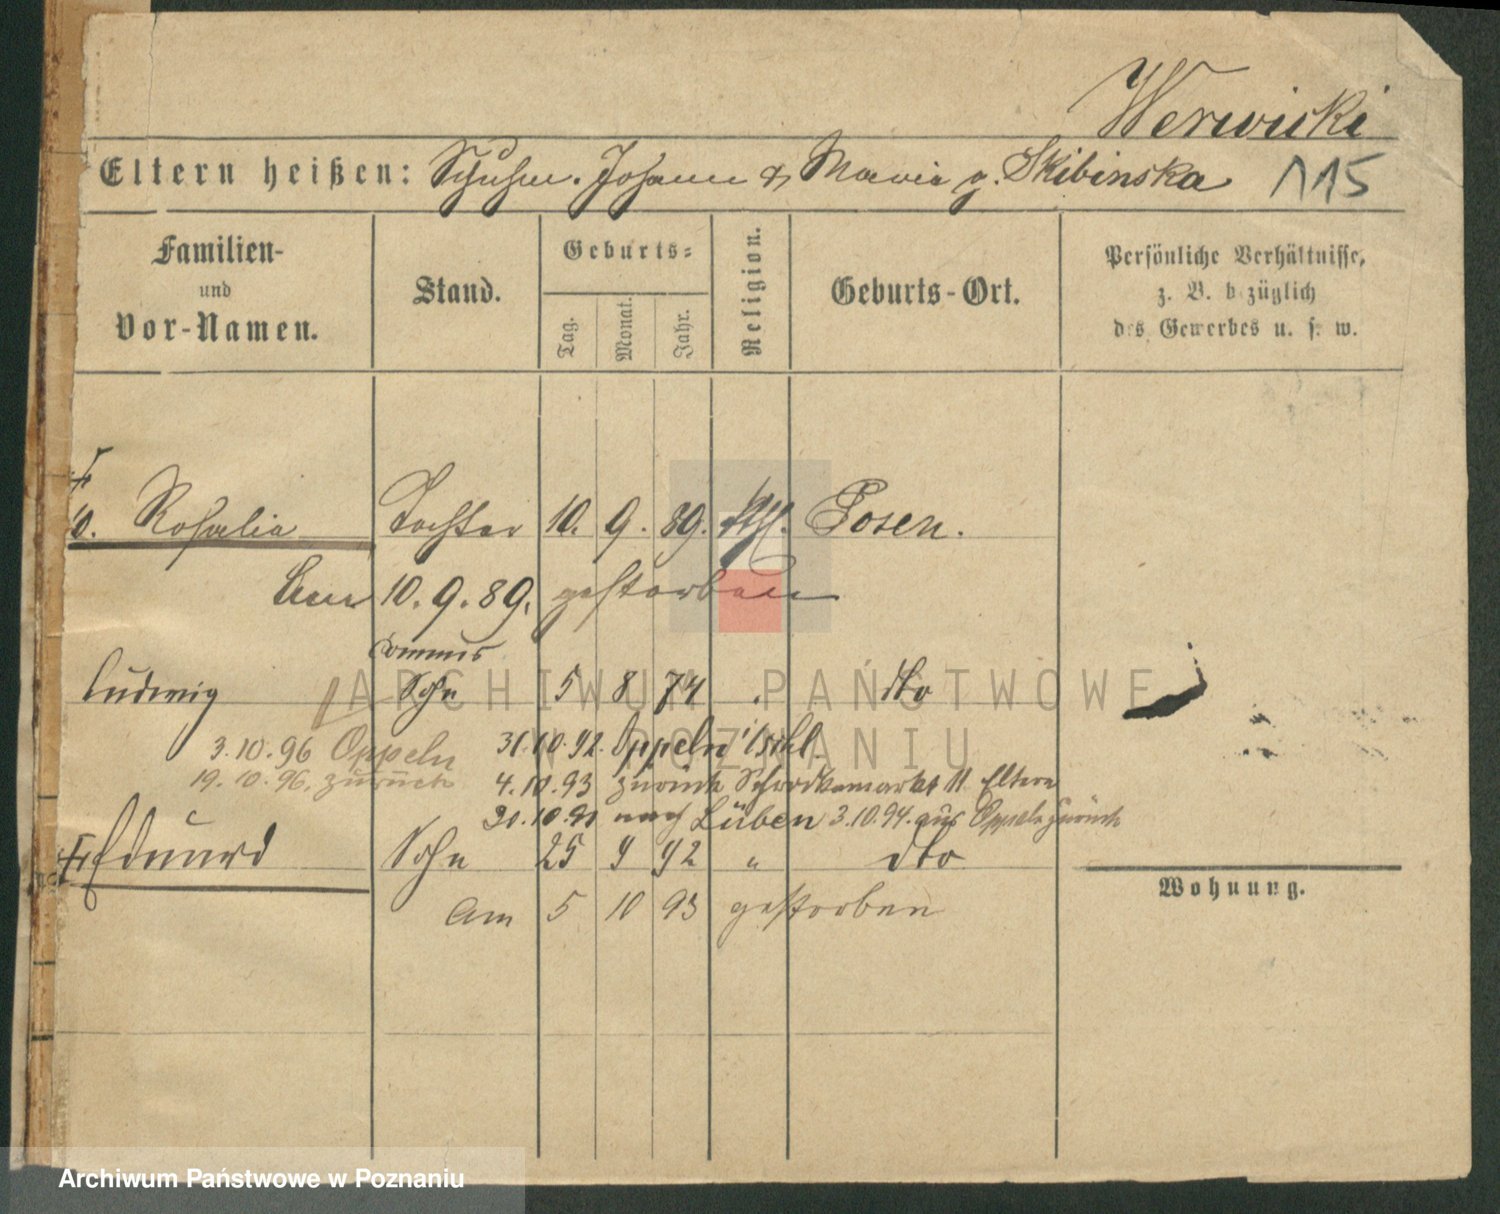 Werwicki
Eltern heißen: Schuhm. Johann & Maria g. Skibinska 115
Familien- und Vor-Namen.
Stand.
Geburts-
Tag.
Monat.
Jahr.
Religion.
Geburts-Ort.
Persönliche Verhältnisse, z. B. bezüglich des Gewerbes u. s. w.
10. Rosalia Tochter 10. 9. 89. kth. Posen.
Am 10. 9. 89. gestorben
Commis
Ludwig Sohn 5 8 74 dto
3.10.96 Oppeln 31.10.92. Oppeln
19.10.96. zurück 4.10.93 zurück 11 Eltern
30.10.90 nach Lüben 3.10.94. aus Oppeln zurück
Eduard Sohn 25 9 92 " dto
Wohnung.
Am 5 10 93 gestorben
ARCHIWUM PAŃSTWOWE
W POZNANIU
Archiwum Państwowe w Poznaniu